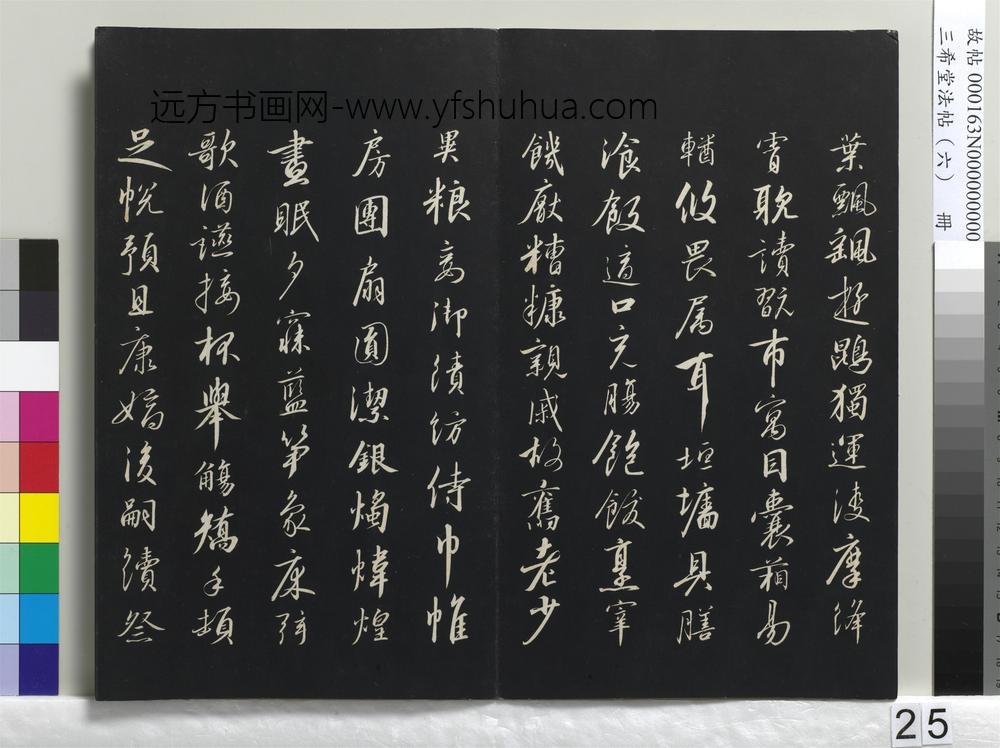 葉飄飖遊鵾獨運淩摩絳
霄耽讀翫市寓目囊箱易
輶攸畏属耳垣墻具膳
飡飯適口充腸飽飫烹宰
饑厭糟糠親戚故舊老少
異粮妾御績紡侍巾帷
房團扇圓潔銀燭煒煌
晝眠夕寐藍笋象床弦
歌酒讌接杯舉觴矯手頓
足悅豫且康嫡後嗣續祭
远方书画网-www.yfshuhua.com
故帖 000163N000000000
三希堂法帖（六） 冊
25